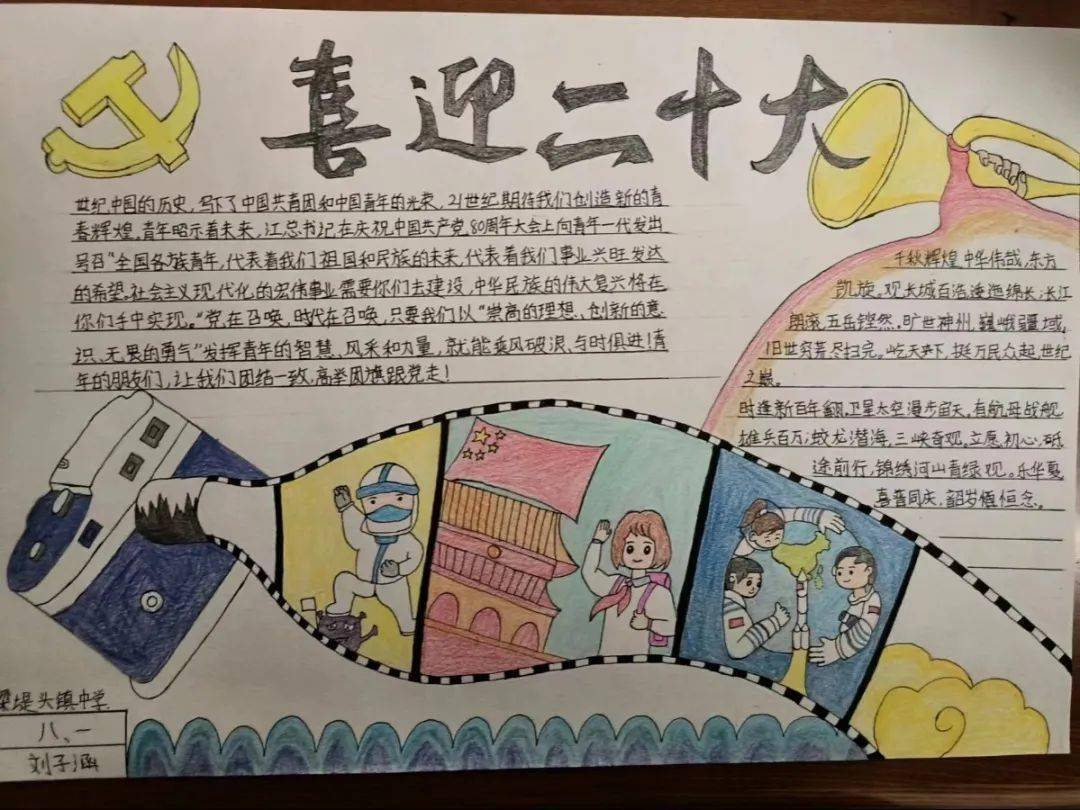 喜迎二十大
世纪,中国的历史,写下了中国共青团和中国青年的光荣,21世纪,期待我们创造新的青
春辉煌,青年昭示着未来,江总书记在庆祝中国共产党80周年大会上向青年一代发出
号召"全国各族青年,代表着我们祖国和民族的未来,代表着我们事业兴旺发达
的希望,社会主义现代化的宏伟事业需要你们去建设,中华民族的伟大复兴将在
你们手中实现。"党在召唤,时代在召唤,只要我们以"崇高的理想、创新的意
识、无畏的勇气"发挥青年的智慧、风采和力量,就能乘风破浪、与时俱进!青
年的朋友们,让我们团结一致,高举团旗跟党走!
千秋辉煌,中华伟哉,东方
凯旋。观长城百浩逶迤绵长;长江
翻滚,五岳铿然。旷世神州,巍峨疆域,
旧世穷荒尽扫完。屹天下,挺万民众起,世纪
之巅。
时逢新百年翻,卫星太空漫步宙天。有航母战舰
雄兵百万;蛟龙潜海,三峡奇观。立愿初心,砥
途前行,锦绣河山青绿观。乐华夏
喜普同庆,韶岁恒念。
梁堤头镇中学
八、一
刘子涵